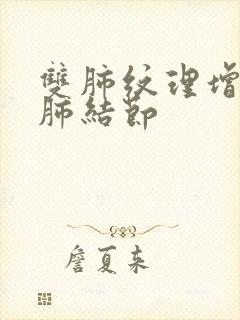 雙肺纹理增
肺結節
詹夏来